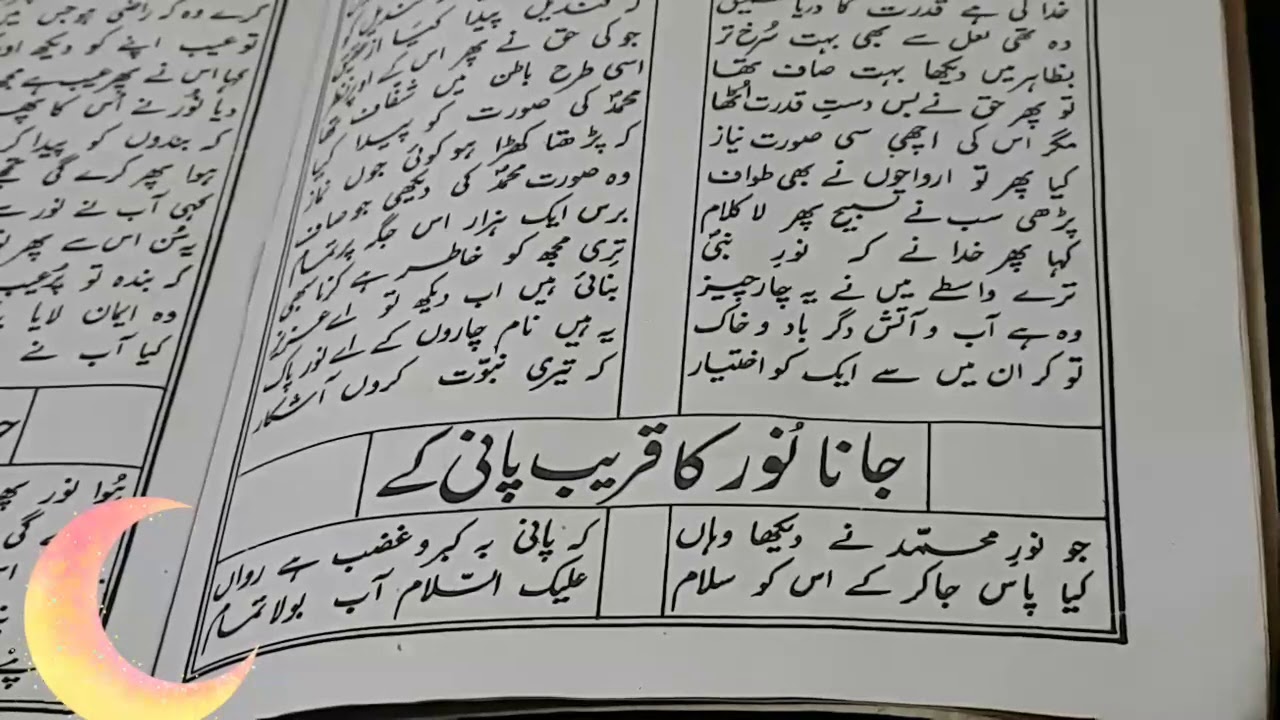 خدا کی ہے قدرت کا دریا
وہ تھی لعل سے بھی بہت سُرخ تر جو کی حق نے پھر اس کے اوپر نظر
بظاہر میں دیکھا بہت صاف تھا اسی طرح باطن میں شفاف تھا
تو پھر حق نے بس دستِ قدرت اُٹھا محمدؐ کی صورت کو پیدا کیا
مگر اس کی اچھی سی صورت نیاز کہ پڑھتا کھڑا ہو کوئی جوں نماز
کیا پھر تو ارواحوں نے بھی طواف وہ صورت محمدؐ کی دیکھی جو صاف
پڑھی سب نے تسبیح پھر لا کلام برس ایک ہزار اس جگہ پر تمام
کہا پھر خدا نے کہ نورِ نبیؐ تری مجھ کو خاطر ہے کرنا سبھی
ترے واسطے میں نے یہ چار چیز بنائی ہیں اب دیکھ تو اے عزیز
وہ ہے آب و آتش دگر باد و خاک یہ ہیں نام چاروں کے اے نور پاک
تو کر ان میں سے ایک کو اختیار کہ تیری نبوّت کروں آشکار
جانا نُور کا قریب پانی کے
جو نورِ محمّد نے دیکھا وہاں کہ پانی بہ کبر و غضب ہے رواں
کیا پاس جا کر کے اس کو سلام علیک السّلام آب بولا تمام
کرے وہ کہ راضی ہو جس میں
تو عیب اپنے کو دیکھ اور
کہا اس نے پھر عیب ہے مجھ
دیا نُور نے اُس کا پھر
کہ بندوں کو پیدا کر
ہوا پھر کرے گی تجھے
کہی آب نے نور سے
یہ سُن اس سے پھر
کہ بندہ تو پُر عیب
وہ ایمان لایا
کیا آب نے
ہُوا نور پھر